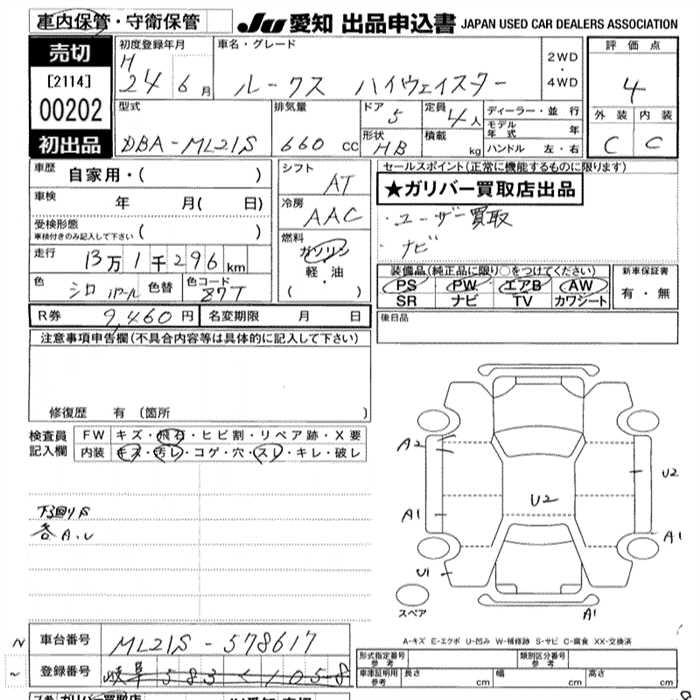 車内保管・守衛保管 JU 愛知 出品申込書 JAPAN USED CAR DEALERS ASSOCIATION
売切
[2114]
00202
初出品
初度登録年月
H 24年 6月
車名・グレード
ルークス ハイウェイスター
2WD
・
4WD
評価点
4
外装 内装
C C
型式
DBA-ML21S
排気量
660 cc
ドア 5
定員 4人
形状 HB
積載 kg
ディーラー・並行
モデル年式 年
ハンドル 左・右
車歴 自家用・( )
車検 年 月( 日)
受検形態
車検付きのみ記入して下さい ( )
走行 13万1千296km
色 シロ パール 色替 色コード 87T
シフト AT
冷房 AAC
燃料
ガソリン
軽・油
( )
セールスポイント(正常に機能するものに限ります)
★ガリバー買取店出品
・ユーザー買取
・ナビ
装備品(純正品に限り○をつけてください)
PS PW エアB AW
SR ナビ TV カワシート
新車保証書
有・無
R券 9,460円 名変期限 月 日
後日品
注意事項申告欄(不具合内容等は具体的に記入して下さい)
修復歴 有 〔箇所 〕
検査員記入欄
FW キズ・飛石・ヒビ割・リペア跡・X要
内装 キズ・汚レ・コゲ・穴・スレ・キレ・破レ
下回りS
各A.U
A2
U2
U2
A1
A1
U1
A1
スペア
A-キズ E-エクボ U-凹み W-補修跡 S-サビ C-腐食 XX-交換済
車台番号 ML21S-578617
登録番号 岐阜 583 く 1058
形式指定番号 参考
類別区分番号 参考
車庫証明用 参考 長さ cm 幅 cm 高さ cm
ガリバー買取店